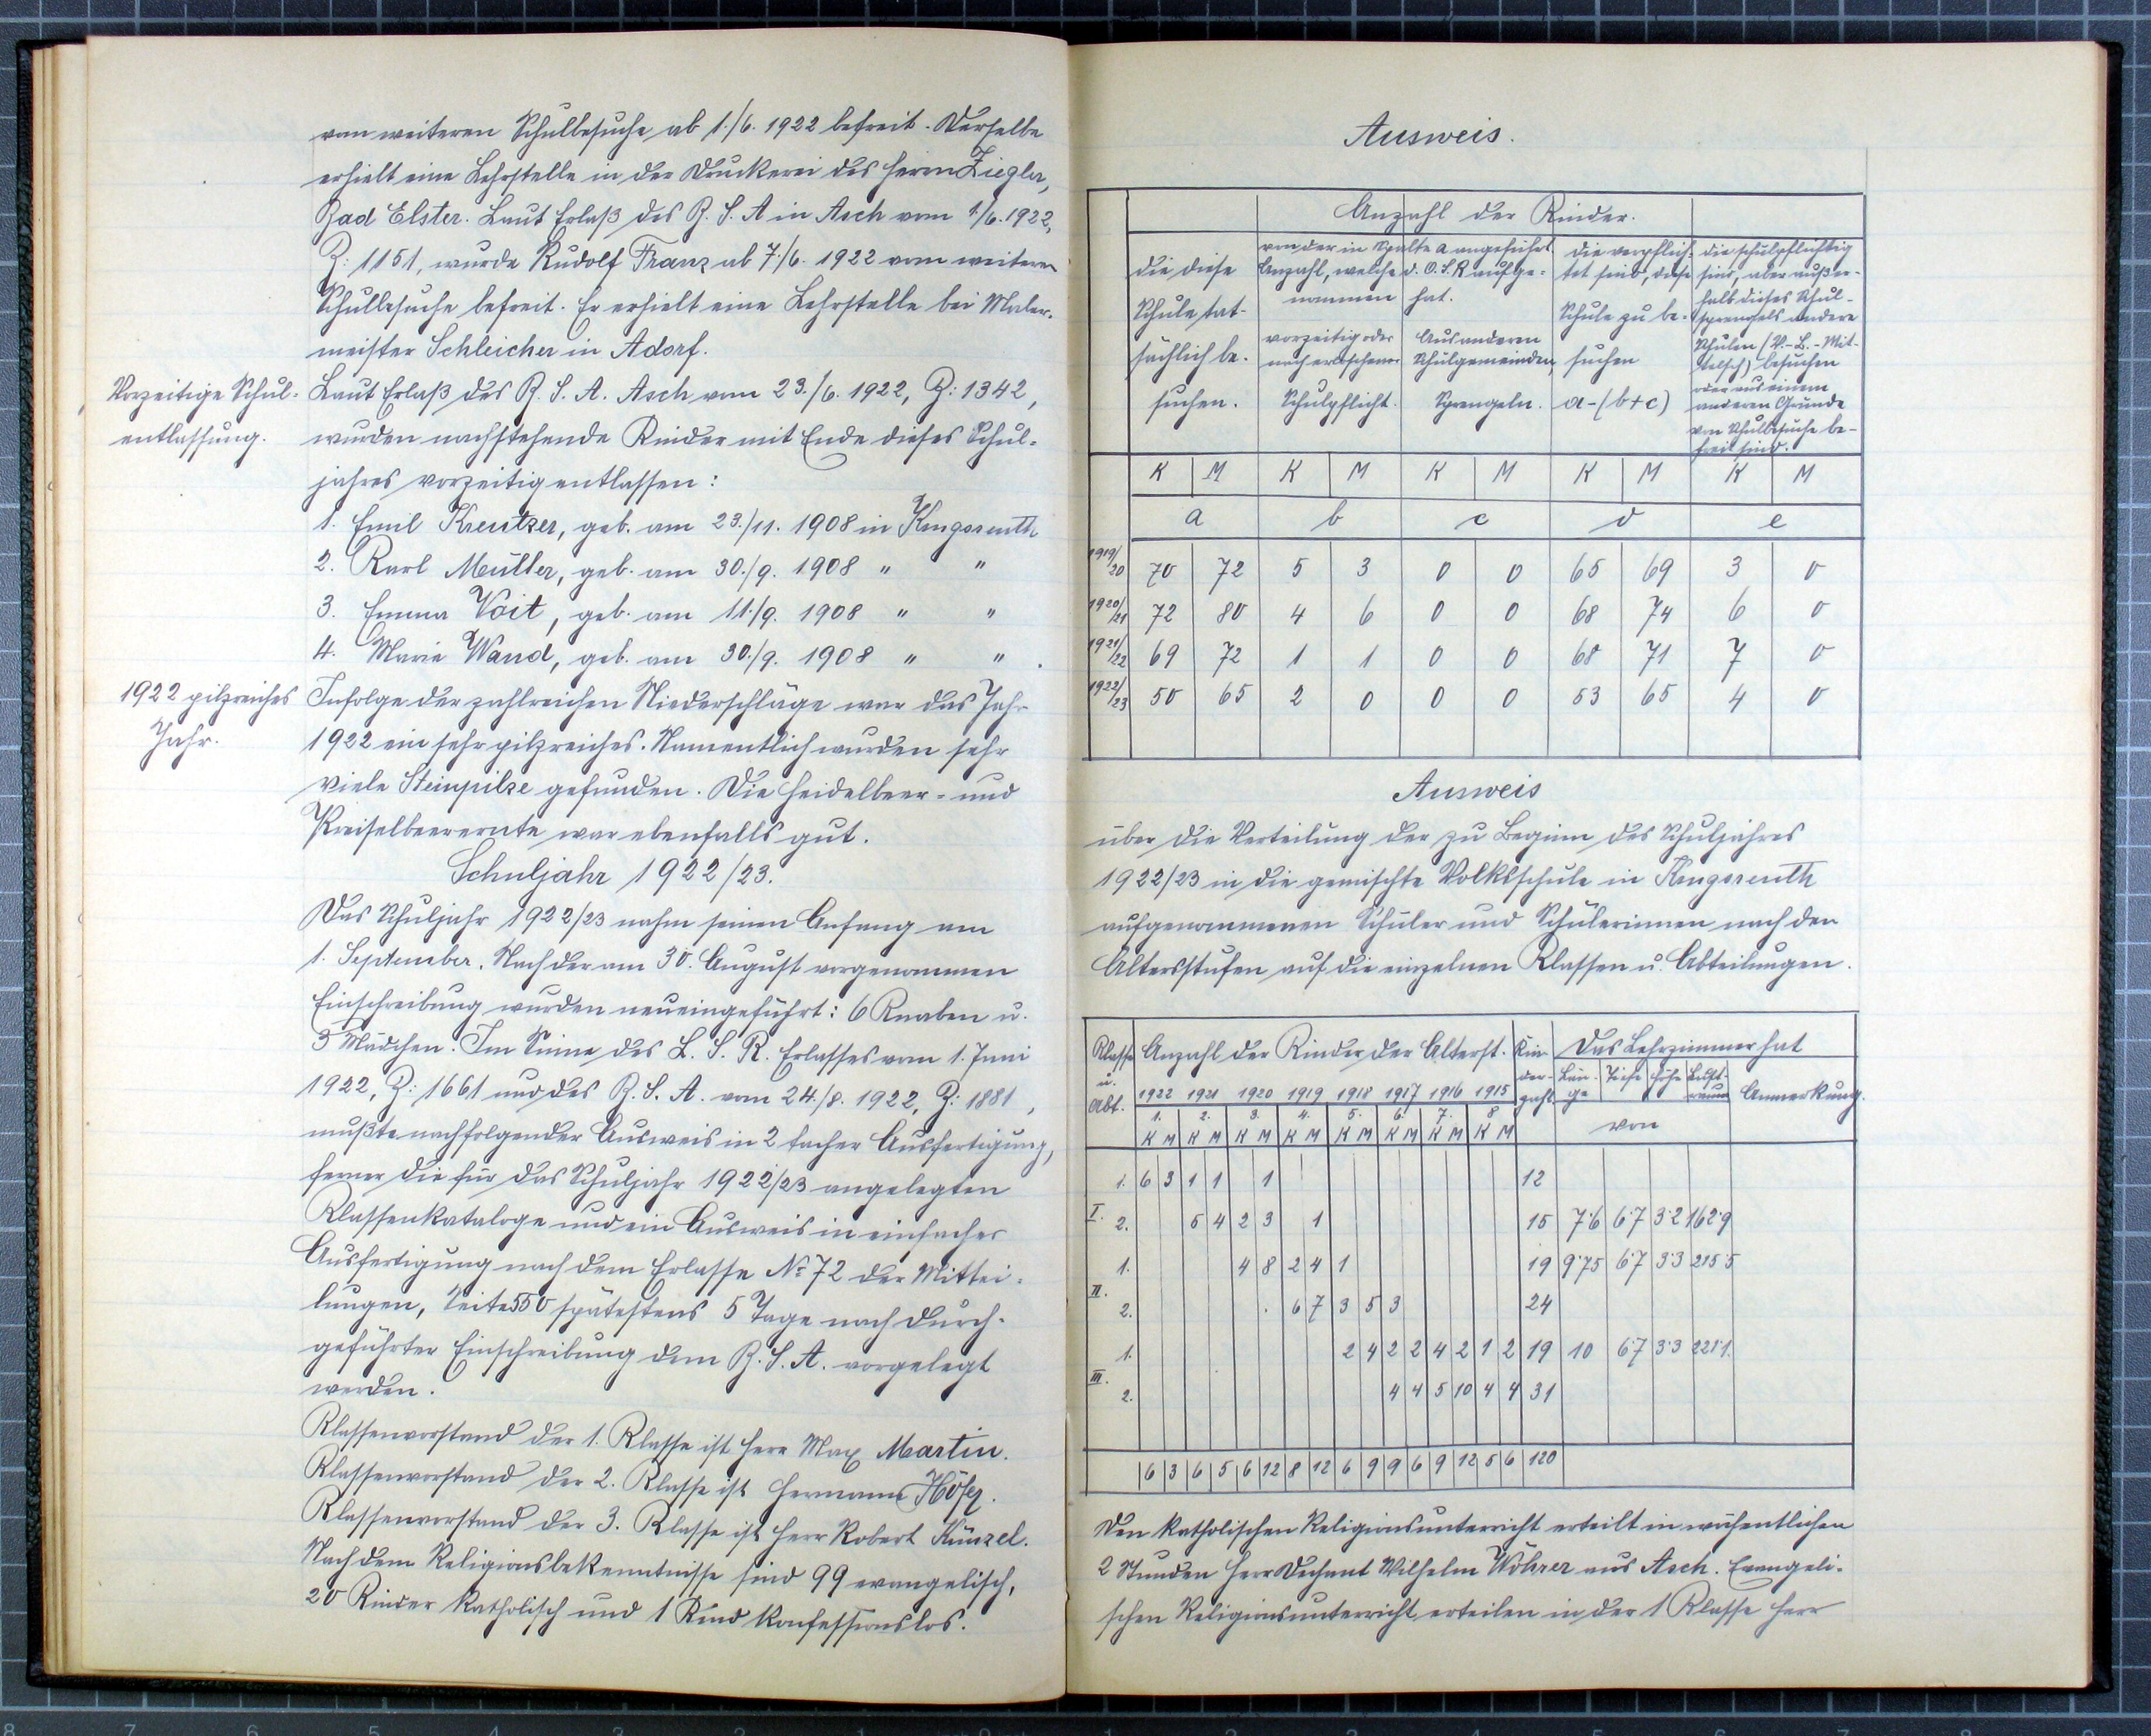 vom weiteren Schulbesuche ab 1./6. 1922 befreit. Derselbe
erhielt eine Lehrstelle in der Druckerei des Herrn Ziegler,
Bad Elster. Laut Erlaß des B. S. A in Asch vom 1./6. 1922,
Z: 1151, wurde Rudolf Franz ab 7./6. 1922 vom weiteren
Schulbesuche befreit. Er erhielt eine Lehrstelle bei Maler-
meister Schleicher in Adorf.
Vorzeitige Schul-
entlassung.
Laut Erlaß des B. S. A. Asch vom 23./6. 1922, Z: 1342,
wurden nachstehende Kinder mit Ende dieses Schul-
jahres vorzeitig entlassen:
1. Emil Kreutzer, geb. am 23./11. 1908 in Krugsreuth
2. Karl Müller, geb. am 30./9. 1908 " "
3. Emma Voit, geb. am 11./9. 1908 " "
4. Marie Wand, geb. am 30./9. 1908 " " .
1922 pilzreiches
Jahr.
Infolge der zahlreichen Niederschläge war das Jahr
1922 ein sehr pilzreiches. Namentlich wurden sehr
viele Steinpilze gefunden. Die Heidelbeer- und
Preiselbeerernte war ebenfalls gut.
Schuljahr 1922/23.
Das Schuljahr 1922/23 nahm seinen Anfang am
1. September. Nach der am 30. August vorgenommen
Einschreibung wurden neueingeführt: 6 Knaben u.
3 Mädchen. Im Sinne des L. S. R. Erlasses vom 1. Juni
1922, Z: 1661 und des B. S. A. vom 24./8. 1922, Z: 1881,
mußte nachfolgender Ausweis in 2 facher Ausfertigung,
ferner die für das Schuljahr 1922/23 angelegten
Klassenkataloge und ein Ausweis in einfacher
Ausfertigung nach dem Erlasse No 72 der Mittei-
lungen, Seite 550 spätestens 5 Tage nach durch-
geführter Einschreibung dem B. S. A. vorgelegt
werden.
Klassenvorstand der 1. Klasse ist Herr Max Martin.
Klassenvorstand der 2. Klasse ist Hermann
Klassenvorstand der 3. Klasse ist Herr Robert Künzel.
Nach dem Religionsbekenntnisse sind 99 evangelisch,
20 Kinder katholisch und 1 Kind konfessionslos.
Ausweis.
Anzahl der Kinder.
die diese
Schule tat-
sächlich be-
suchen.
von der in Spalte a angeführt.
Anzahl, welche d. O. S. R aufge-
nommen hat.
vorzeitig oder
nach erloschener
Schulpflicht.
Aus anderen
Schulgemeinden,
Sprengeln.
die verpflich-
tet sind, diese
Schule zu be-
suchen
a-(b+c)
die schulpflichtig
sind, aber außer-
halb dieses Schul-
sprengels andere
Schulen (V.-B.-Mit-
telsch) besuchen
oder aus einem
anderen Grunde
vom Schulbesuche be-
freit sind.
K M K M K M K M K M
a b c d e
1919/20 70 72 5 3 0 0 65 69 3 0
1920/21 72 80 4 6 0 0 68 74 6 0
1921/22 69 72 1 1 0 0 68 71 7 0
1922/23 50 65 2 0 0 0 53 65 4 0
Ausweis
über die Verteilung der zu Beginn des Schuljahres
1922/23 in die gemischte Volksschule in Krugsreuth
aufgenommenen Schüler und Schülerinnen nach den
Altersstufen auf die einzelnen Klassen u. Abteilungen.
Klasse u. Abt. Anzahl der Kinder der Alterst. Kin-der-zahl Das Lehrzimmer hat
1922 1921 1920 1919 1918 1917 1916 1915 Län-ge Tiefe Höhe Luft-raum Anmerkung.
1. 2. 3. 4. 5. 6. 7. 8 von
K M K M K M K M K M K M K M K M
1. 6 3 1 1 1 12
I. 2. 5 4 2 3 1 15 7·6 6·7 3·2 162·9
1. 4 8 2 4 1 19 9·75 6·7 3·3 215·5
II. 2. 6 7 3 5 3 24
1. 2 4 2 2 4 2 1 2 19 10 6·7 3·3 221·1.
III. 2. 4 4 5 10 4 4 31
6 3 6 5 6 12 8 12 6 9 9 6 9 12 5 6 120
Den katholischen Religionsunterricht erteilt in wöchentlichen
2 Stunden Herr Dechant Wilhelm Wöhrer aus Asch. Evangeli-
schen Religionsunterricht erteilen in der 1 Klasse Herr
8 7 6 5 4 3 2 1 0 1 2 3 4 5 6 7 8